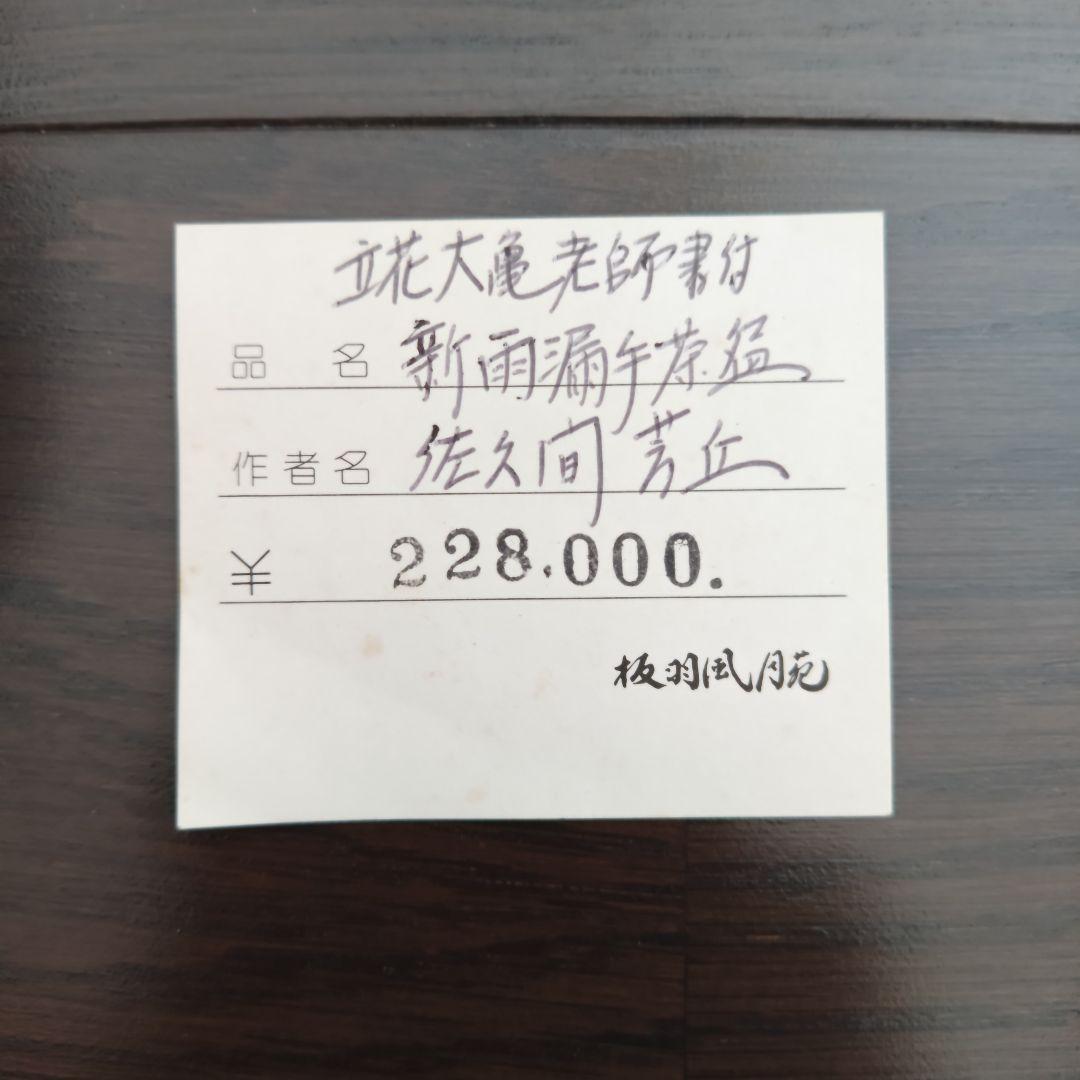 立花大亀老師書付
品 名 新雨漏手茶盌
作者名 佐久間 芳丘
¥ 228.000.
板羽風月苑